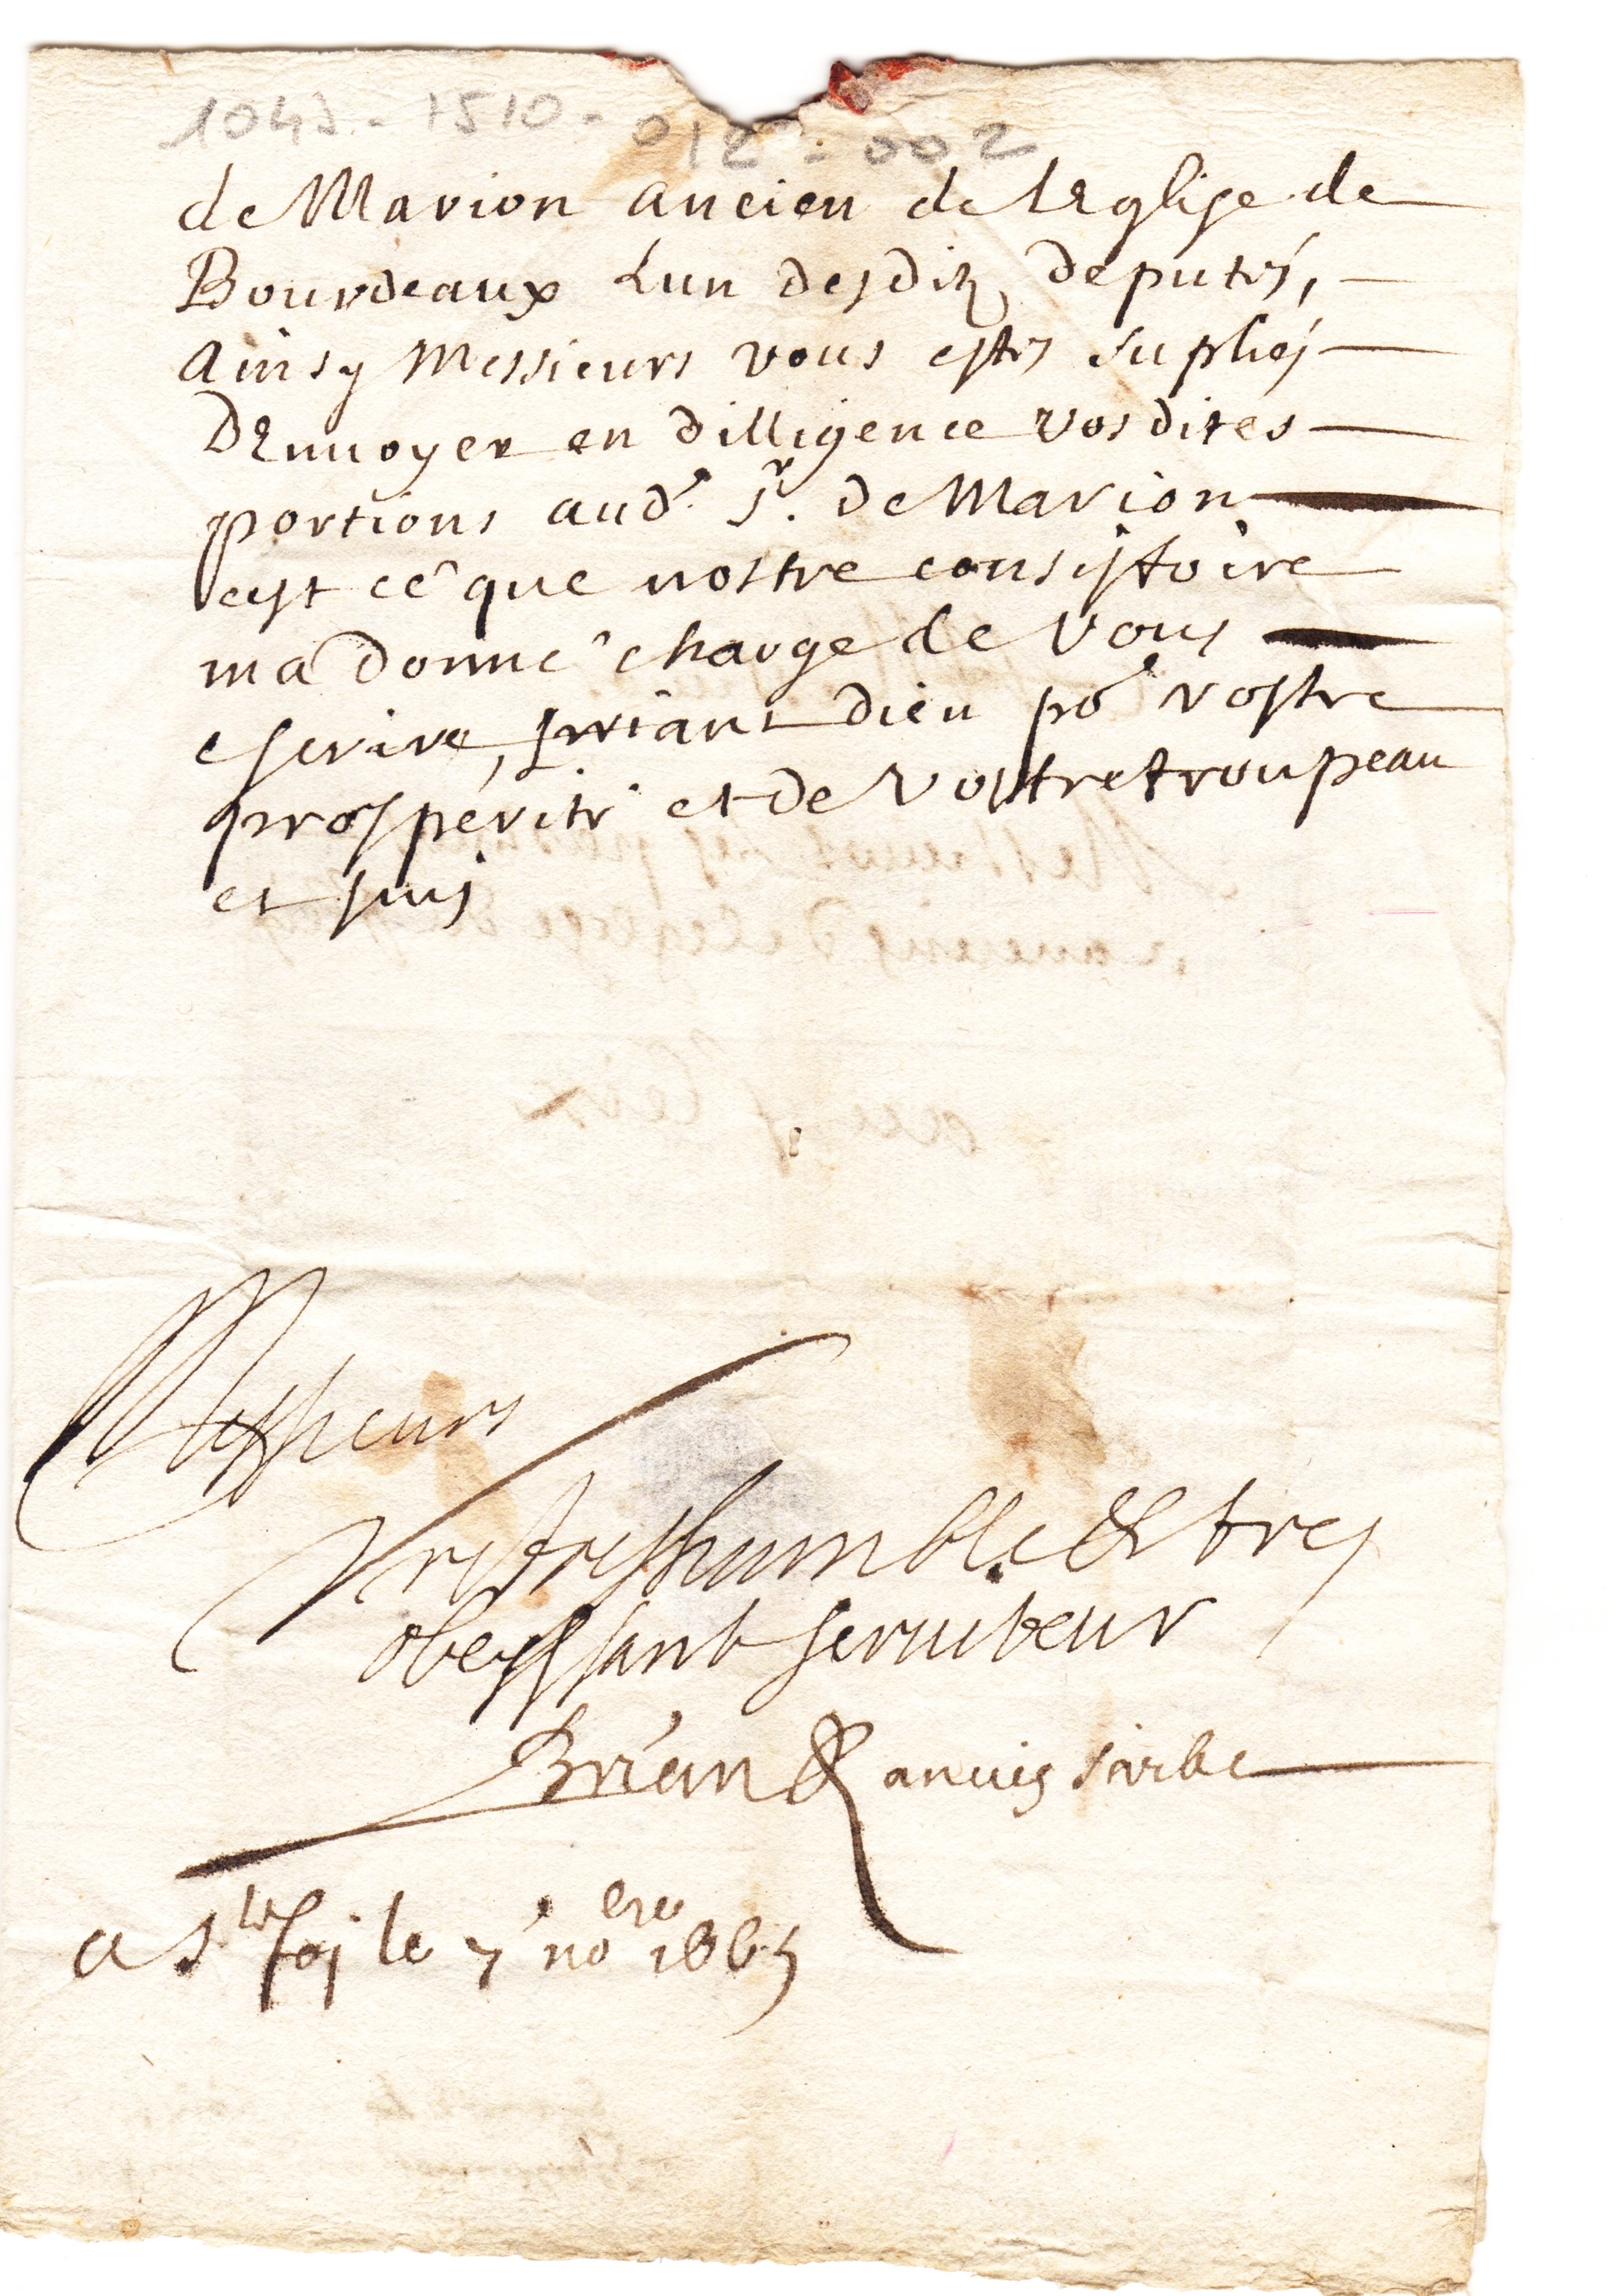 1045-1510-012-002
de Marion ancien de lEglise de
Bourdeaux Lun desditz deputés,
ainsy Messieurs vous estes supliés
DEnuoyer en dilligence vos dites
portions aud.t Sr. de Marion
cest cê que nostre consistoire
ma donné charge de vous
escrire, priant dieu por vostre
prospérité et de vostre troupeau
et suis
Messieurs
Vre tres humble & tres
obeyssant seruiteur
Brian
a Ste foj le 7e nobre 1665